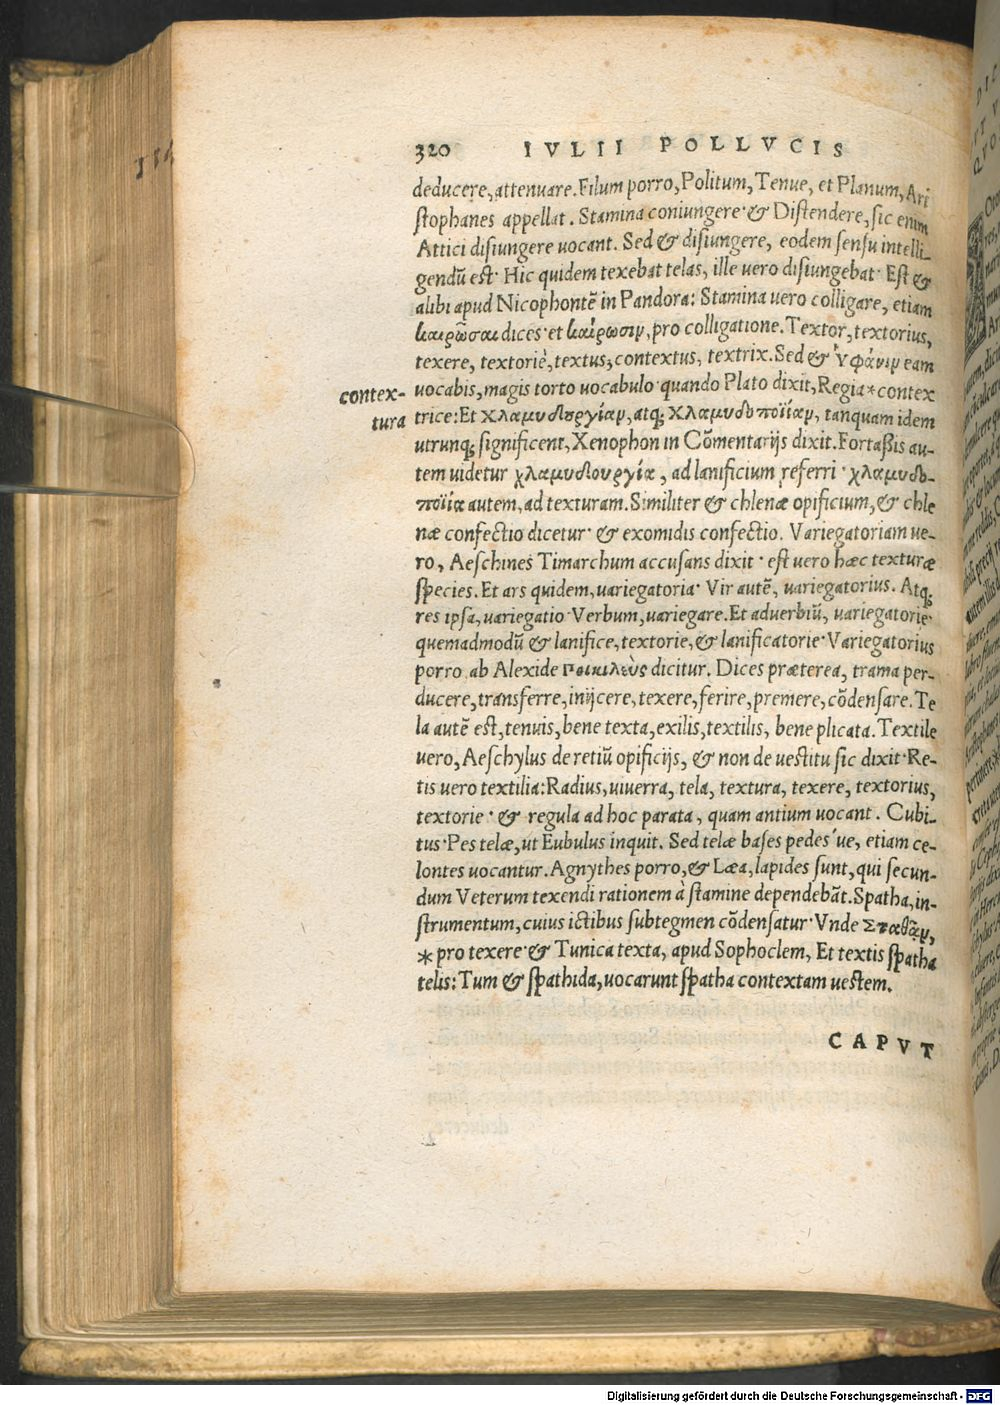 320 IVLII POLLVCIS
deducere, attenuare. Filum porro, Politum, Tenue, et Planum, Ari
stophanes appellat. Stamina coniungere· & Distendere, sic enim
Attici disiungere uocant. Sed & disiungere, eodem sensu intelli-
gendũ est· Hic quidem texebat telas, ille uero disiungebat· Est &
alibi apud Nicophontẽ in Pandora: Stamina uero colligare, etiam
καιρῶσαι dices· et καίρωσιν, pro colligatione. Textor, textorius,
texere, textoriè, textus, contextus, textrix. Sed & ὑφάνιν eam
uocabis, magis torto uocabulo· quando Plato dixit, Regia * contex
contex-
tura
trice: Et χλαμυδουργίαν, atq; χλαμυδοποιΐαν, tanquam idem
utrunq; significent, Xenophon in Cõmentarijs dixit. Fortaßis au-
tem uidetur χλαμυδιουργία, ad lanificium referri· χλαμυδο-
ποιΐα autem, ad texturam. Similiter & chlenæ opificium, & chle
næ confectio dicetur· & exomidis confectio. Variegatoriam ue-
ro, Aeschines Timarchum accusans dixit· est uero hæc texturæ
species. Et ars quidem, uariegatoria· Vir autẽ, uariegatorius. Atq;
res ipsa, uariegatio· Verbum, uariegare. Et aduerbiũ, uariegatorie·
quemadmodũ & lanifice, textorie, & lanificatorie· Variegatorius
porro ab Alexide ποικιλεὺς dicitur. Dices præterea, trama per-
ducere, transferre, inijcere, texere, ferire, premere, cõdensare. Te
la autẽ est, tenuis, bene texta, exilis, textilis, bene plicata. Textile
uero, Aeschylus de retiũ opificijs, & non de uestitu sic dixit· Re-
tis uero textilia: Radius, uiuerra, tela, textura, texere, textorius,
textorie· & regula ad hoc parata, quam antium uocant. Cubi-
tus· Pes telæ, ut Eubulus inquit. Sed telæ bases pedes ́ue, etiam ce-
lontes uocantur. Agnythes porro, & Lææ, lapides sunt, qui secun-
dum Veterum texendi rationem à stamine dependebãt. Spatha, in-
strumentum, cuius ictibus subtegmen cõdensatur· Vnde Σπαθᾶν,
* pro texere· & Tunica texta, apud Sophoclem, Et textis spatha
telis: Tum & spathida, uocarunt spatha contextam uestem.
CAPVT
Digitalisierung gefördert durch die Deutsche Forschungsgemeinschaft - DFG